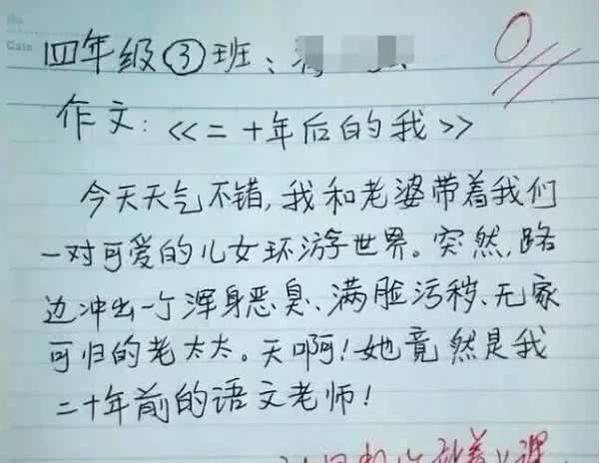 四年级③班:
0
作文:《二十年后的我》
今天天气不错,我和老婆带着我们
一对可爱的儿女环游世界。突然,路
边冲出一个浑身恶臭、满脸污秽、无家
可归的老太太。天啊!她竟然是我
二十年前的语文老师!